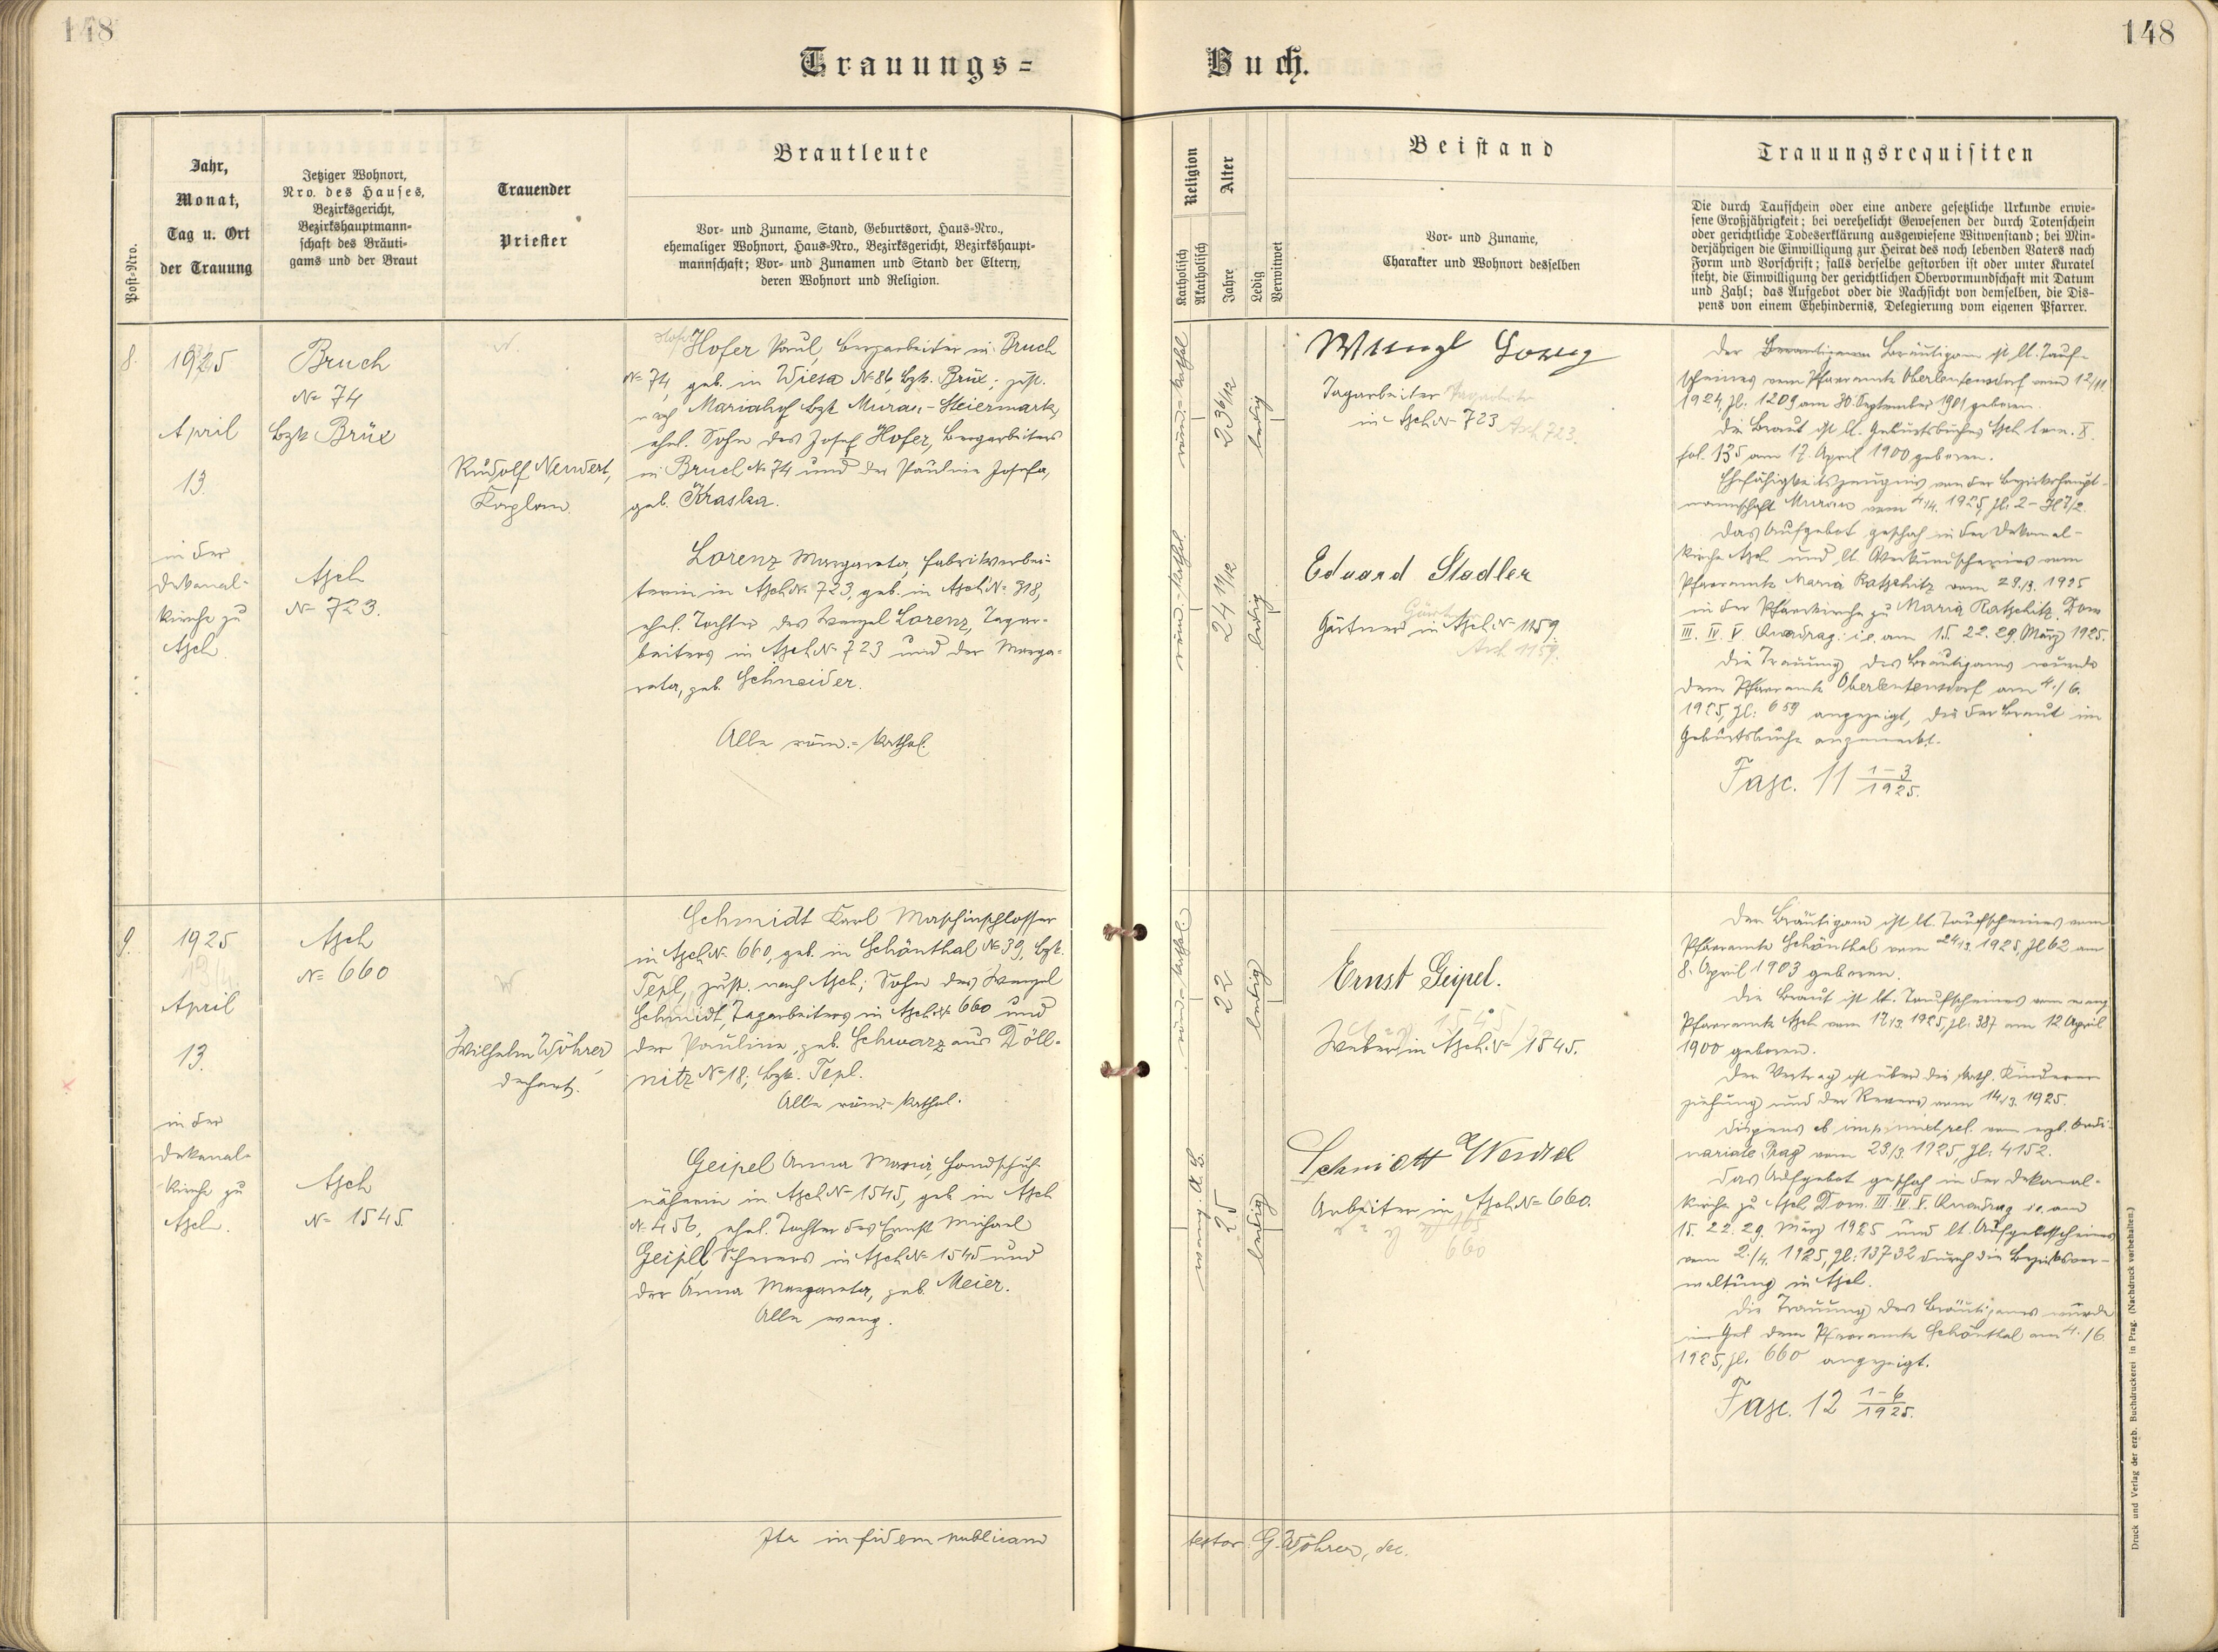 148
148
Trauungs=
Buch.
Post-Nro.
Jahr,
Monat,
Tag u. Ort
der Trauung
Jetziger Wohnort,
Nro. des Hauses,
Bezirksgericht,
Bezirkshauptmann-
schaft des Bräuti-
gams und der Braut
Trauender
Priester
Brautleute
Vor- und Zuname, Stand, Geburtsort, Haus-Nro.,
ehemaliger Wohnort, Haus-Nro., Bezirksgericht, Bezirkshaupt-
mannschaft; Vor- und Zunamen und Stand der Eltern,
deren Wohnort und Religion.
Religion
Katholisch
Akatholisch
Alter
Jahre
Ledig
Verwitwet
Beistand
Vor- und Zuname,
Charakter und Wohnort desselben
Trauungsrequisiten
Die durch Taufschein oder eine andere gesetzliche Urkunde erwie-
sene Großjährigkeit; bei verehelicht Gewesenen der durch Totenschein
oder gerichtliche Todeserklärung ausgewiesene Witwenstand; bei Min-
derjährigen die Einwilligung zur Heirat des noch lebenden Vaters nach
Form und Vorschrift; falls derselbe gestorben ist oder unter Kuratel
steht, die Einwilligung der gerichtlichen Obervormundschaft mit Datum
und Zahl; das Aufgebot oder die Nachsicht von demselben, die Dis-
pens von einem Ehehindernis, Delegierung vom eigenen Pfarrer.
8.
1925
April
13.
in der
Dekanal-
kirche zu
Asch
Bruch
No 74
Bzk Brüx
Asch
No 723.
Rudolf Neudert,
Kaplan.
Hofer Paul, Bergarbeiter in Bruch
No 74, geb. in Wiesa No 86, Bzk. Brüx; zust.
nach Mariahof Bzk Murau-Steiermark,
ehel. Sohn des Josef Hofer, Bergarbeiters
in Bruch No 74 und der Pauline Josefa,
geb. Kraska.
Lorenz Margareta, Fabriksarbei-
terin in Asch No 723, geb. in Asch No 318,
ehel. Tochter des Wenzel Lorenz, Tagar-
beiters in Asch No 723 und der Marga-
reta, geb. Schneider.
Alle röm.-kathol.
röm.-kathol
23 6/12
ledig
röm.-kathol.
24 11/12
ledig
Wenzl Lorenz
Tagarbeiter
in Asch No 723
Asch 723.
Eduard Stadler
Gärtner in Asch No 1159
Asch 1159.
Der Bräutigam ist lt. Tauf-
scheines vom Pfarramte Oberleutensdorf vom 12/11
1924, Zl: 1209 am 30. September 1901 geboren.
Die Braut ist lt. Geburtsbuches Asch tom. X.
fol. 135 am 17. April 1900 geboren.
Ehefähigkeitszeugnis von der Bezirkshaupt-
mannschaft Murau vom 4/4. 1925, Zl: 2-H 7/2.
Das Aufgebot geschah in der Dekanal-
kirche Asch und lt. Verkundscheines vom
Pfarramte Maria Ratschitz vom 29./3. 1925
in der Pfarrkirche zu Maria Ratschitz Dom
III. IV. V. Quadrag: i.e. am 15. 22. 29. März 1925.
Die Trauung des Bräutigams wurde
dem Pfarramte Oberleutensdorf am 4./6.
1925, Zl: 659 angezeigt, die der Braut im
Geburtsbuche angemerkt.
Fasc. 11 1-3/1925.
9.
1925
April
13.
in der
Dekanal-
kirche zu
Asch.
Asch
No 660
Asch
No 1545.
Wilhelm Wöhrer,
Dechant.
Schmidt Karl Maschinschlosser
in Asch No 660, geb. in Schönthal No 39, Bzk.
Tepl, zust. nach Asch; Sohn des Wenzel
Schmidt, Tagarbeiters in Asch No 660 und
der Pauline, geb. Schwarz aus Döll-
nitz No 18; Bzk. Tepl.
Alle röm.-kathol.
Geipel Anna Maria, Handschuh-
näherin in Asch No 1545, geb in Asch
No 456, ehel. Tochter des Ernst Michael
Geipel, Scherers in Asch No 1545 und
der Anna Margareta, geb. Meier.
Alle evang.
röm.-kathol
22
ledig
evang. A. B.
25
ledig
Ernst Geipel.
Weber in Asch No 1545.
Schmidt Wenzel
Arbeiter in Asch No 660.
660
Der Bräutigam ist lt. Taufscheines vom
Pfarramte Schönthal vom 24/3. 1925, Zl 62 am
8. April 1903 geboren.
Die Braut ist lt. Taufscheines vom evang
Pfarramte Asch vom 12/3. 1925, Zl: 387 am 12 April
1900 geboren.
Der Vertrag ist über die kath. Kinderer
ziehung und der Revers vom 14./3. 1925.
Dispens ab imp. mixt. rel. vom erzb. Ordi-
nariate Prag vom 23/3. 1925, Zl: 4152.
Das Aufgebot geschah in der Dekanal-
kirche zu Asch Dom. III. IV. V. Quadrag i.e. am
15. 22. 29. März 1925 und lt. Aufgebotsscheines
vom 2./4. 1925, Zl: 13732 durch die Bezirksver-
waltung in Asch.
Die Trauung des Bräutigams wurde
dem Pfarramte Schönthal am 4./6
1925, Zl. 660 angezeigt.
Fasc. 12 1-6/1925.
Ita in fidem publicam
testor G. Wöhrer, dec.
Druck und Verlag der erzb. Buchdruckerei in Prag. (Nachdruck vorbehalten.)